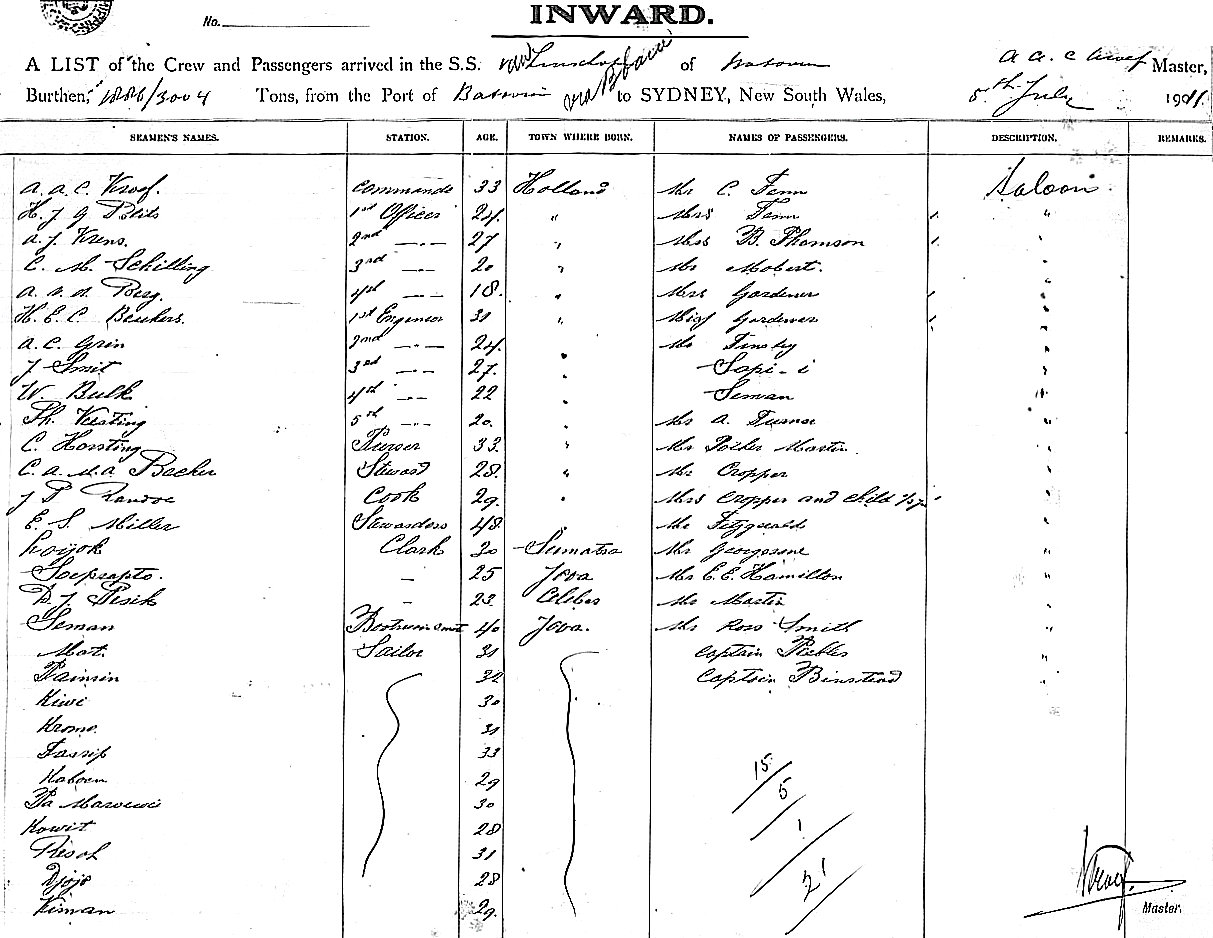 No.
INWARD.
A LIST of the Crew and Passengers arrived in the S.S. van Linschoten of Batavia A A. C Kroef Master,
Burthen, 1886/3004 Tons, from the Port of Batavia via to SYDNEY, New South Wales, 5th July 1911.
SEAMEN'S NAMES. STATION. AGE. TOWN WHERE BORN. NAMES OF PASSENGERS. DESCRIPTION. REMARKS.
A. A. C. Kroef. Commander 33 Holland Mr C. Fenn Saloon
H. J G Blits 1st Officer 24. " Mrs Fenn "
A. J. Krens. 2nd —"— 27 " Mrs B. Thomson "
C. M. Schilling 3rd —"— 20 " Mr Mobert. "
A. v. d. Berg. 4th —"— 18. " Mrs Gardener "
H. E. C. Beukers. 1st Engineer 31 " Miss Gardener "
A. C. Grin 2nd —"— 24. " Mr "
J Smit 3rd —"— 27. " Sapi-i "
W. Bulk 4th —"— 22 " Seman "
Th. Kersting 5th —"— 20. " Mr A. Turner "
C. Horsting Purser 33. " Mr Martin "
C. A. v. d. Backer Steward 28. " Mr Cropper "
J P Cook 29. " Mrs Cropper and Child "
E. S. Miller Stewardess 48. Mr Fitzgerald "
Clark 20 Sumatra Mr "
Soeprapto. - 25 Java Mr E. E. Hamilton "
D. J. Pesik - 23 Celebes Mr Martin "
Seman 40 Java. Mr Ross Smith "
Mat. Sailor 31 Captain Peebles "
Paimin 32 Captain Binstead "
Kiwi 30
Kromo. 31
Tasrip 33
Kaboen 29
30
Kowit 28
Resol 31
Djojo 28
Kiman 29.
15
5
1
21
Kroef.
Master.